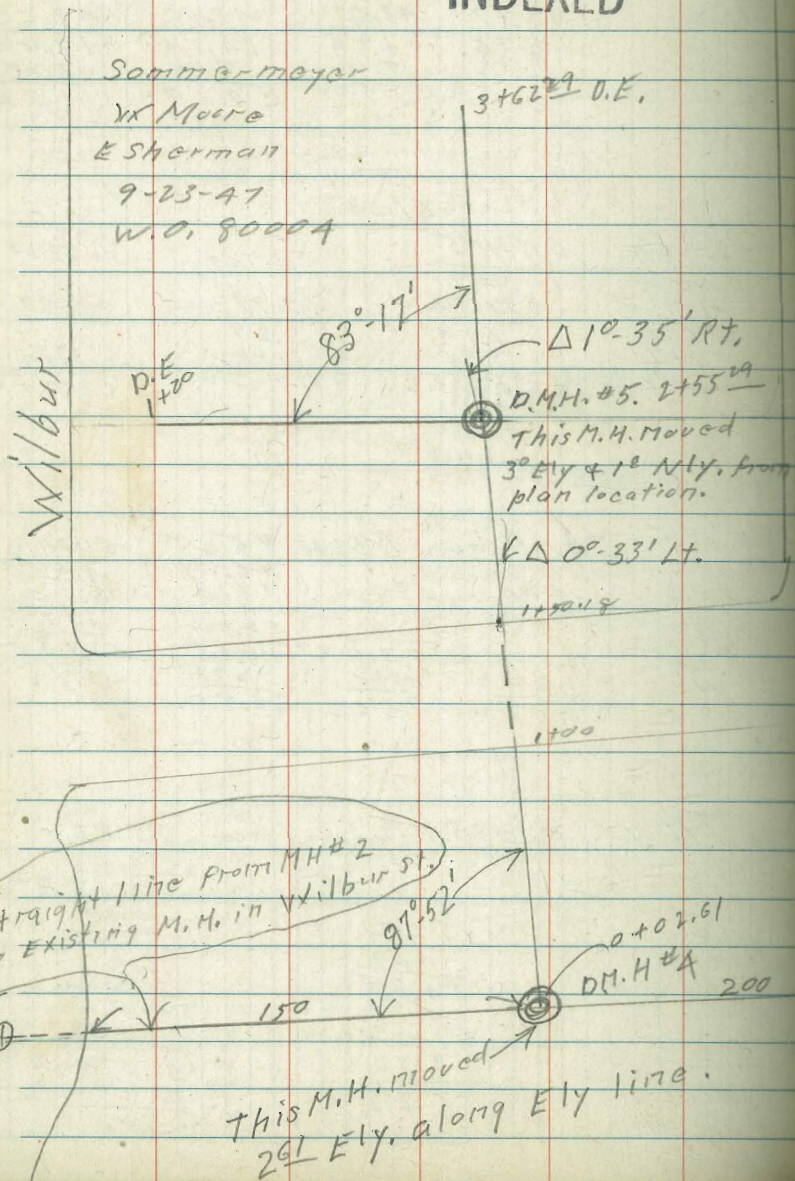 INDEXED
Sommermeyer
W Moore
E Sherman
9-23-47
W.O. 80004
3+62 29 D.E.
83°-17'
Δ 1°-35' Rt.
D.E.
1+20
D.M.H. #5. 2+55 29
This M.H. moved
3° Ely & 1° Nly. from
plan location.
Wilbur
Δ 0°-33' Lt.
1+50.18
1+00
traight line from MH #2
Existing M.H. in Wilbur st.
87°-52'
0+02.61
D.M.H #4
150
200
This M.H. moved
2 61 Ely. along Ely line.